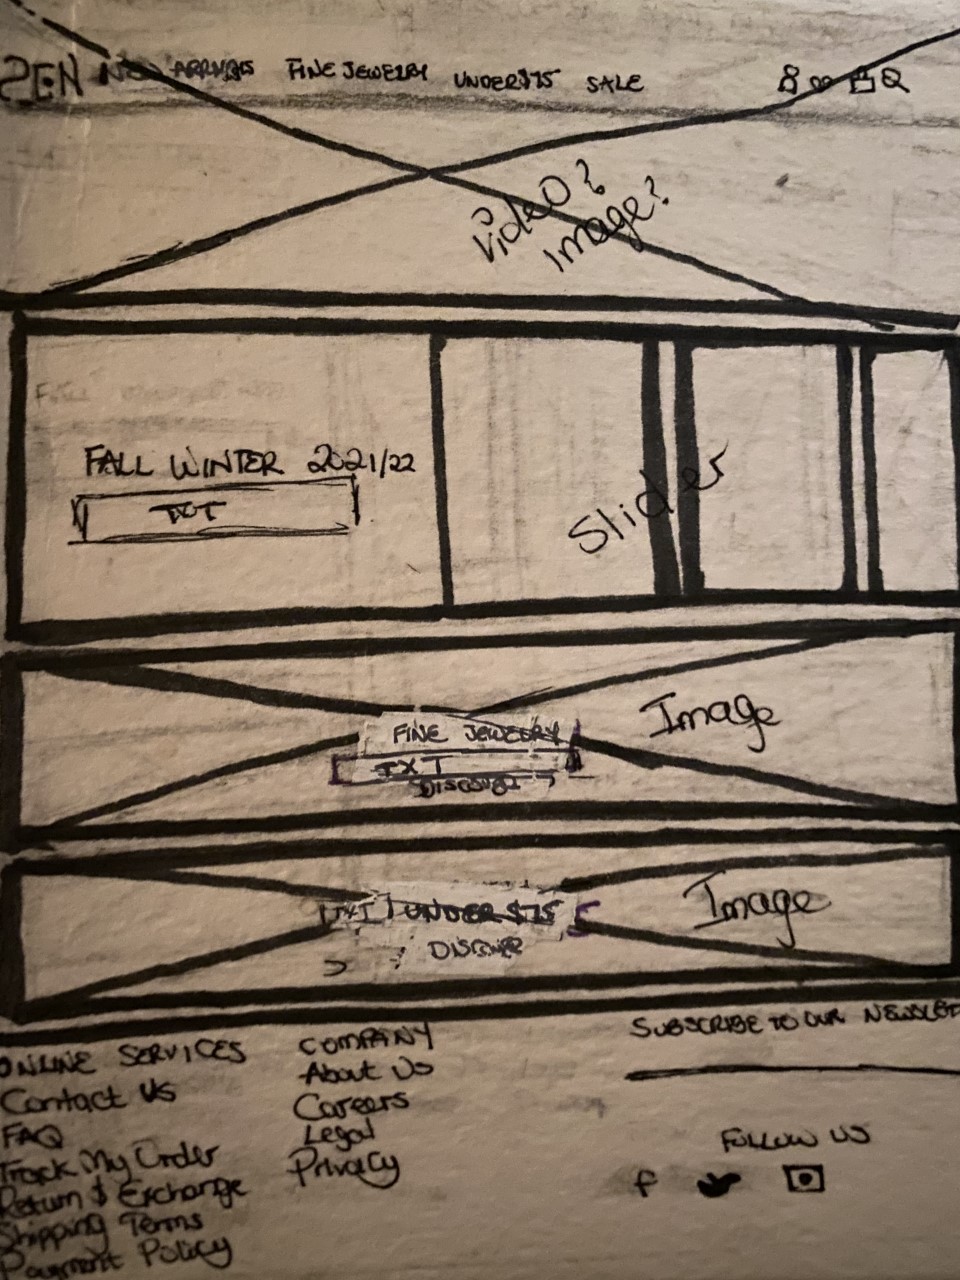 ZEN NEW ARRIVALS FINE JEWELRY UNDER $75 SALE
Video?
Image?
FALL WINTER 2021/22
TXT
Slider
FINE JEWELRY
TXT
DISCOVER
Image
TXT UNDER $75
DISCOVER
Image
ONLINE SERVICES
Contact Us
FAQ
Track My Order
Return & Exchange
Shipping Terms
Payment Policy
COMPANY
About Us
Careers
Legal
Privacy
SUBSCRIBE TO OUR NEWSLET
FOLLOW US
f